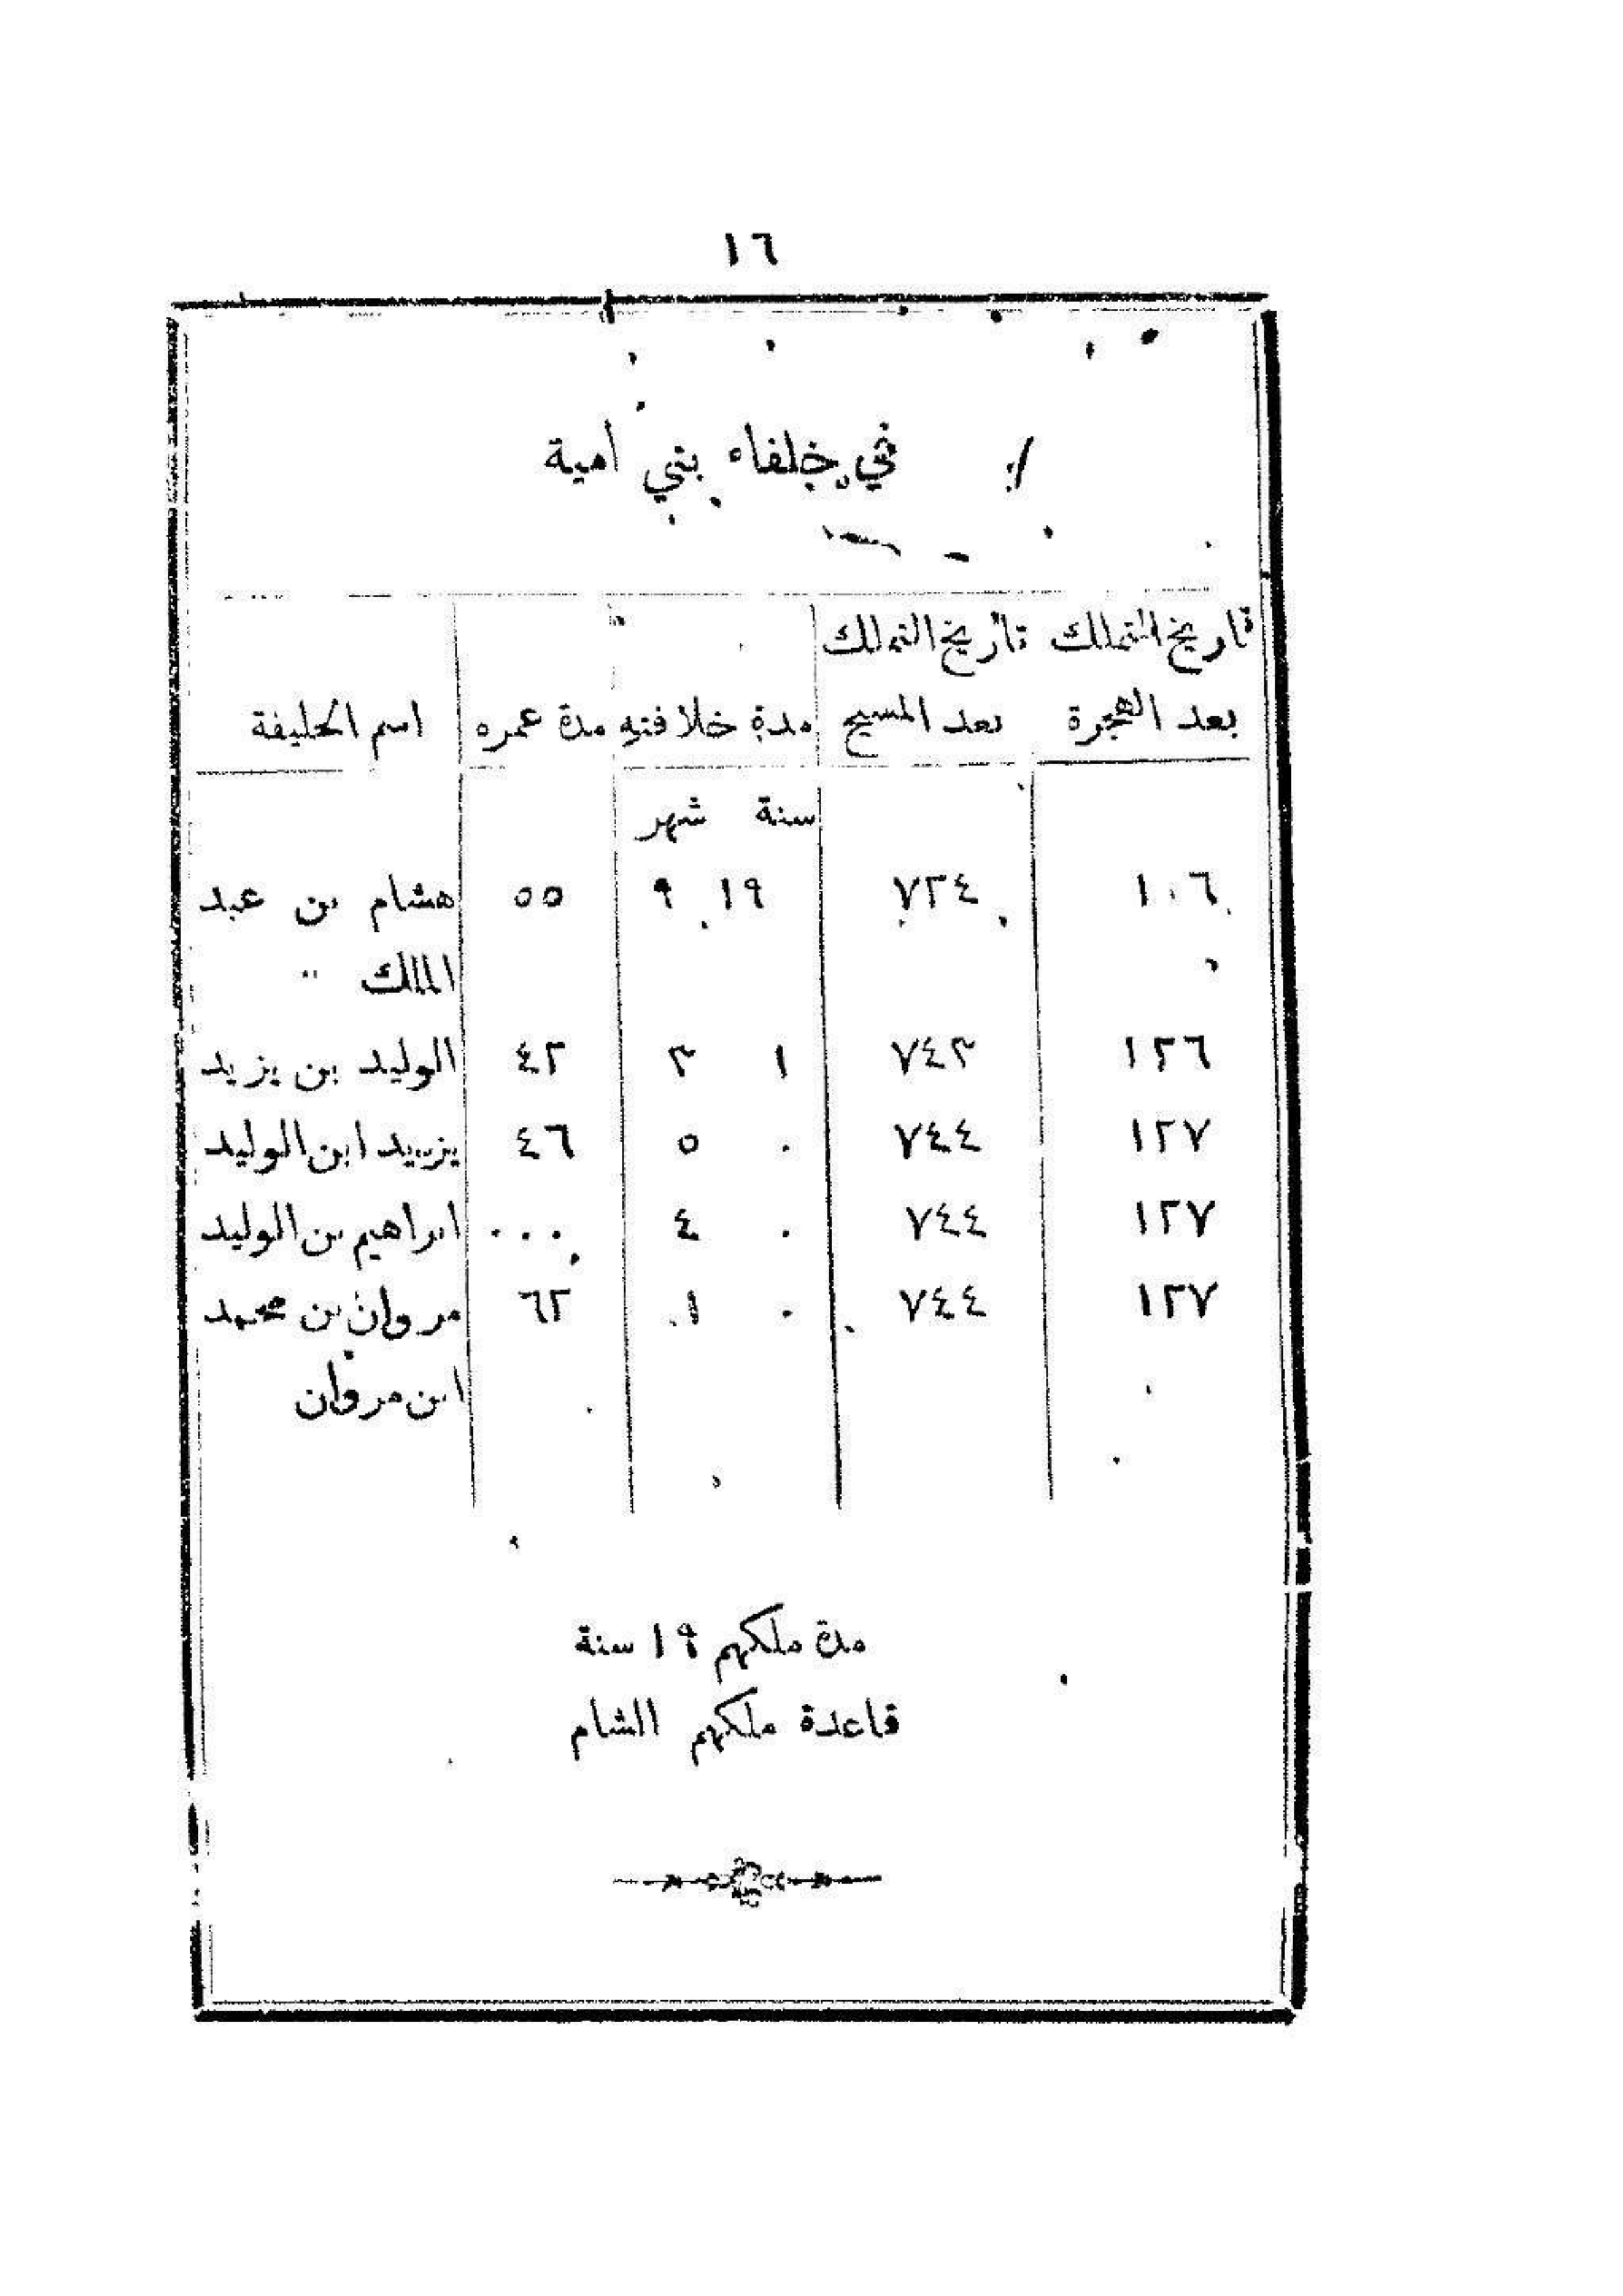 ١٦
في خلفاء بني أمية
تاريخ التملك تأريخ التملك
بعد الهجرة بعد المسيح مدة خلافته مدة عمره اسم الخليفة
سنة شهر
١٠٦ ٧٢٤ ١٩ ٩ ٥٥ هشام بن عبد
الملك
١٢٦ ٧٤٣ ١ ٣ ٤٢ الوليد بن يزيد
١٢٧ ٧٤٤ ٠ ٥ ٤٦ يزيد ابن الوليد
١٢٧ ٧٤٤ ٠ ٤ ٠٠٠ ابراهيم بن الوليد
١٢٧ ٧٤٤ ٠ ١ ٦٢ مروان بن محمد
ابن مروان
مدة ملكهم ٩١ سنة
قاعدة ملكهم الشام